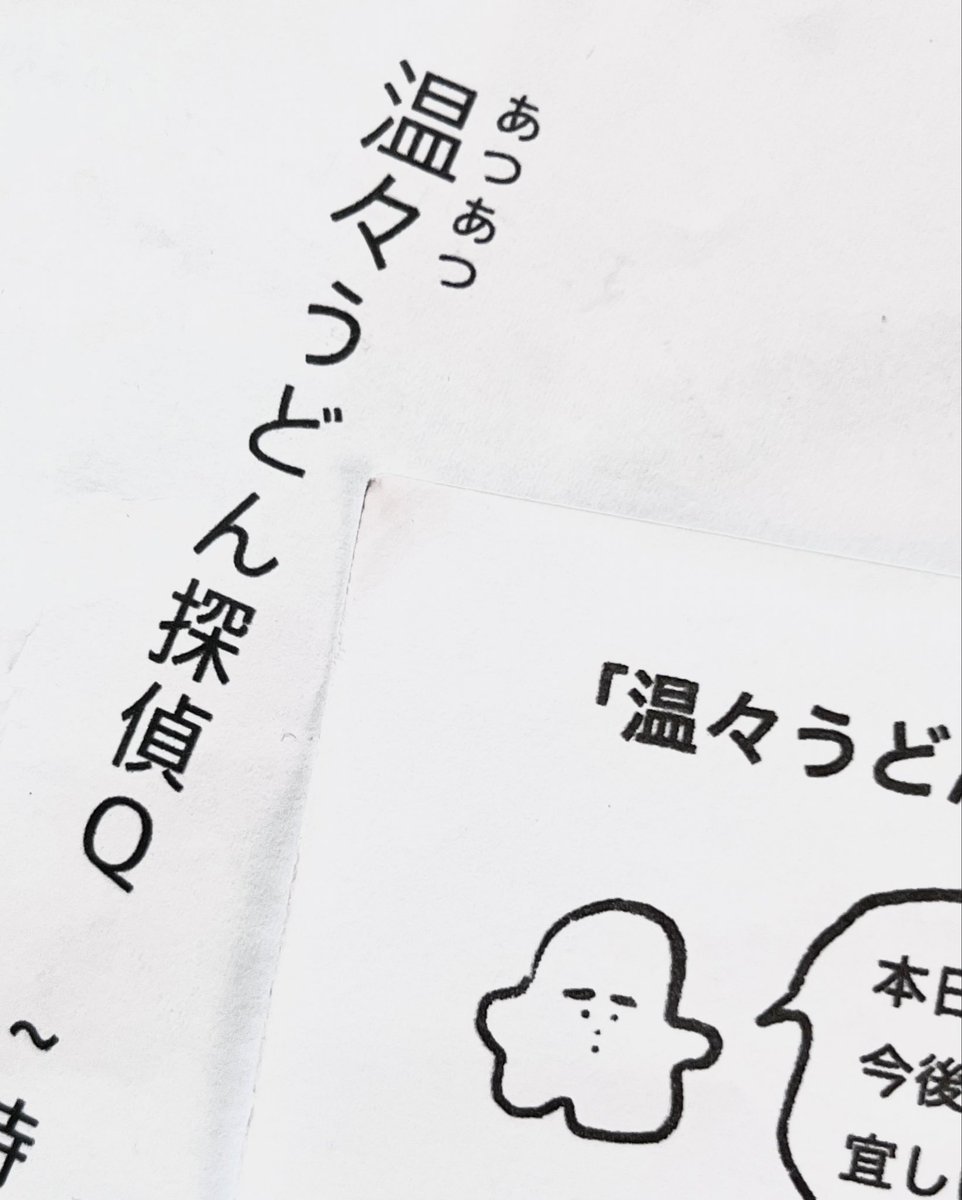 温々うどん探偵Q
あつあつ
～
「温々うど
本日
今後
宜し